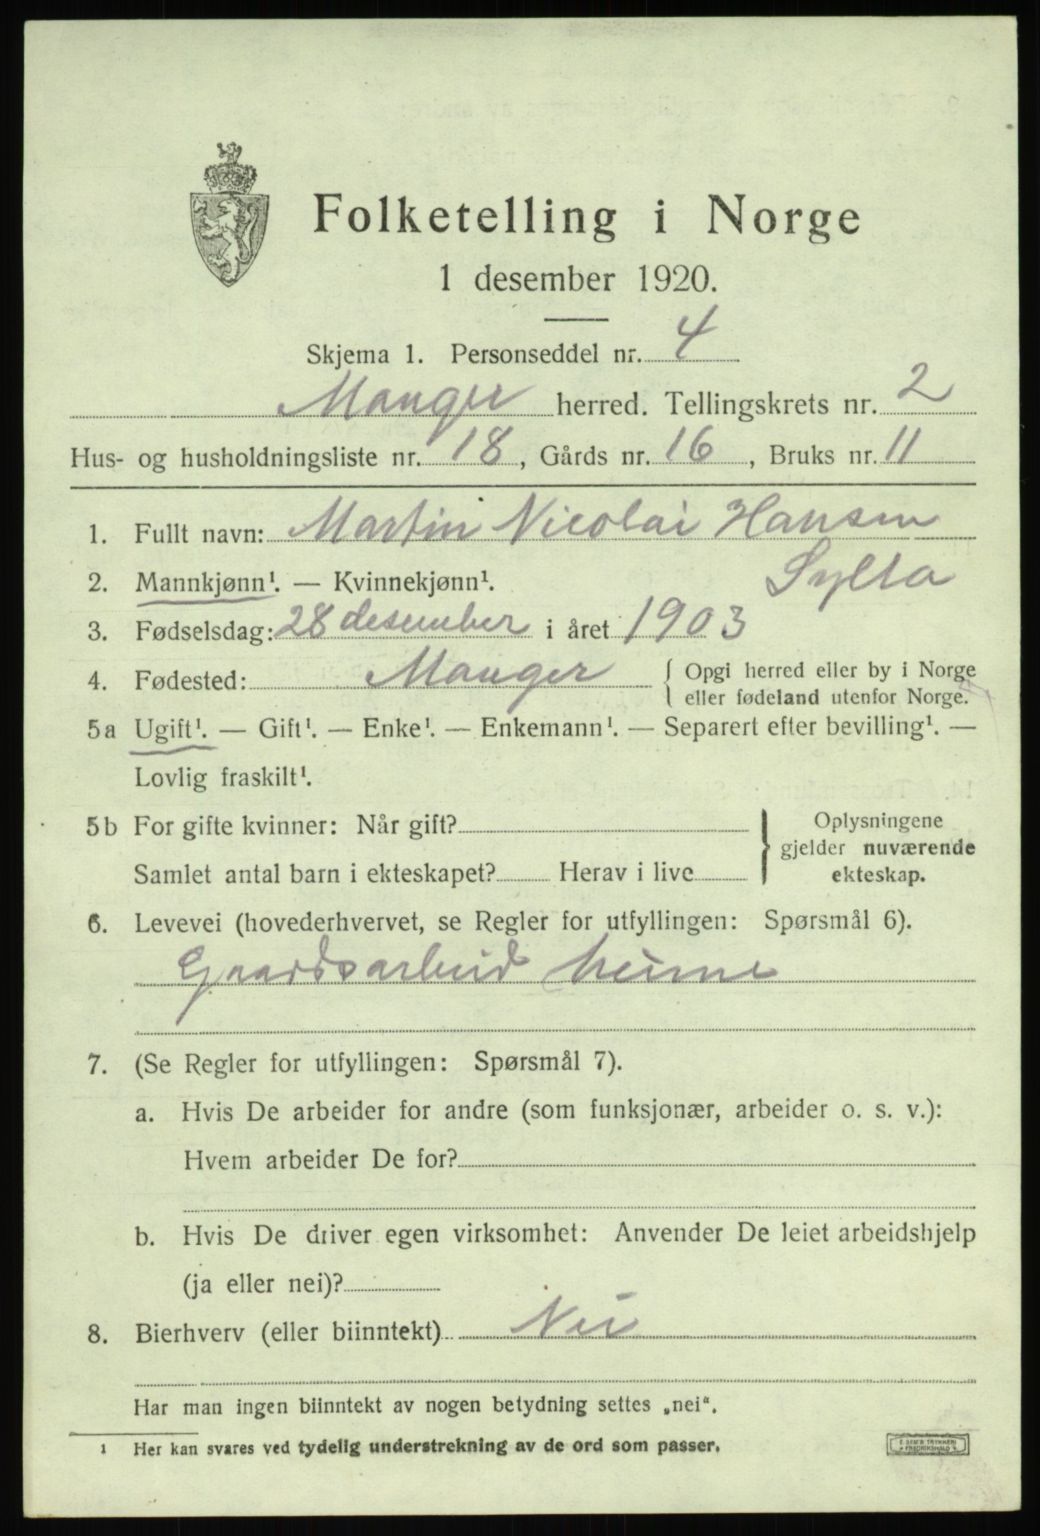 Folketelling i Norge
1 desember 1920.
Skjema 1. Personseddel nr. 4
Manger herred. Tellingskrets nr. 2
Hus- og husholdningsliste nr. 18, Gårds nr. 16, Bruks nr. 11
1. Fullt navn: Martin Nicolai Hansen
Sylta
2. Mannkjønn¹. — Kvinnekjønn¹.
3. Fødselsdag: 28 desember i året 1903
4. Fødested: Manger { Opgi herred eller by i Norge
eller fødeland utenfor Norge.
5a Ugift¹. — Gift¹. — Enke¹. — Enkemann¹. — Separert efter bevilling¹. —
Lovlig fraskilt¹.
5b For gifte kvinner: Når gift? } Oplysningene
gjelder nuværende
Samlet antal barn i ekteskapet? Herav i live
ekteskap.
6. Levevei (hovederhvervet, se Regler for utfyllingen: Spørsmål 6).
Gaardsarbeid heime
7. (Se Regler for utfyllingen: Spørsmål 7).
a. Hvis De arbeider for andre (som funksjonær, arbeider o. s. v.):
Hvem arbeider De for?
b. Hvis De driver egen virksomhet: Anvender De leiet arbeidshjelp
(ja eller nei)?
8. Bierhverv (eller biinntekt) Nei
Har man ingen biinntekt av nogen betydning settes „nei“.
¹ Her kan svares ved tydelig understrekning av de ord som passer.